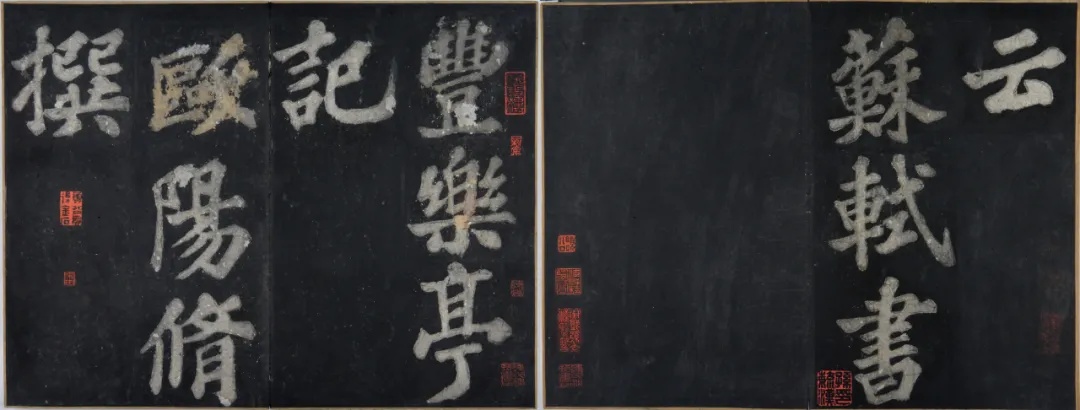 豐樂亭
記
歐陽脩
撰
云
蘇軾書